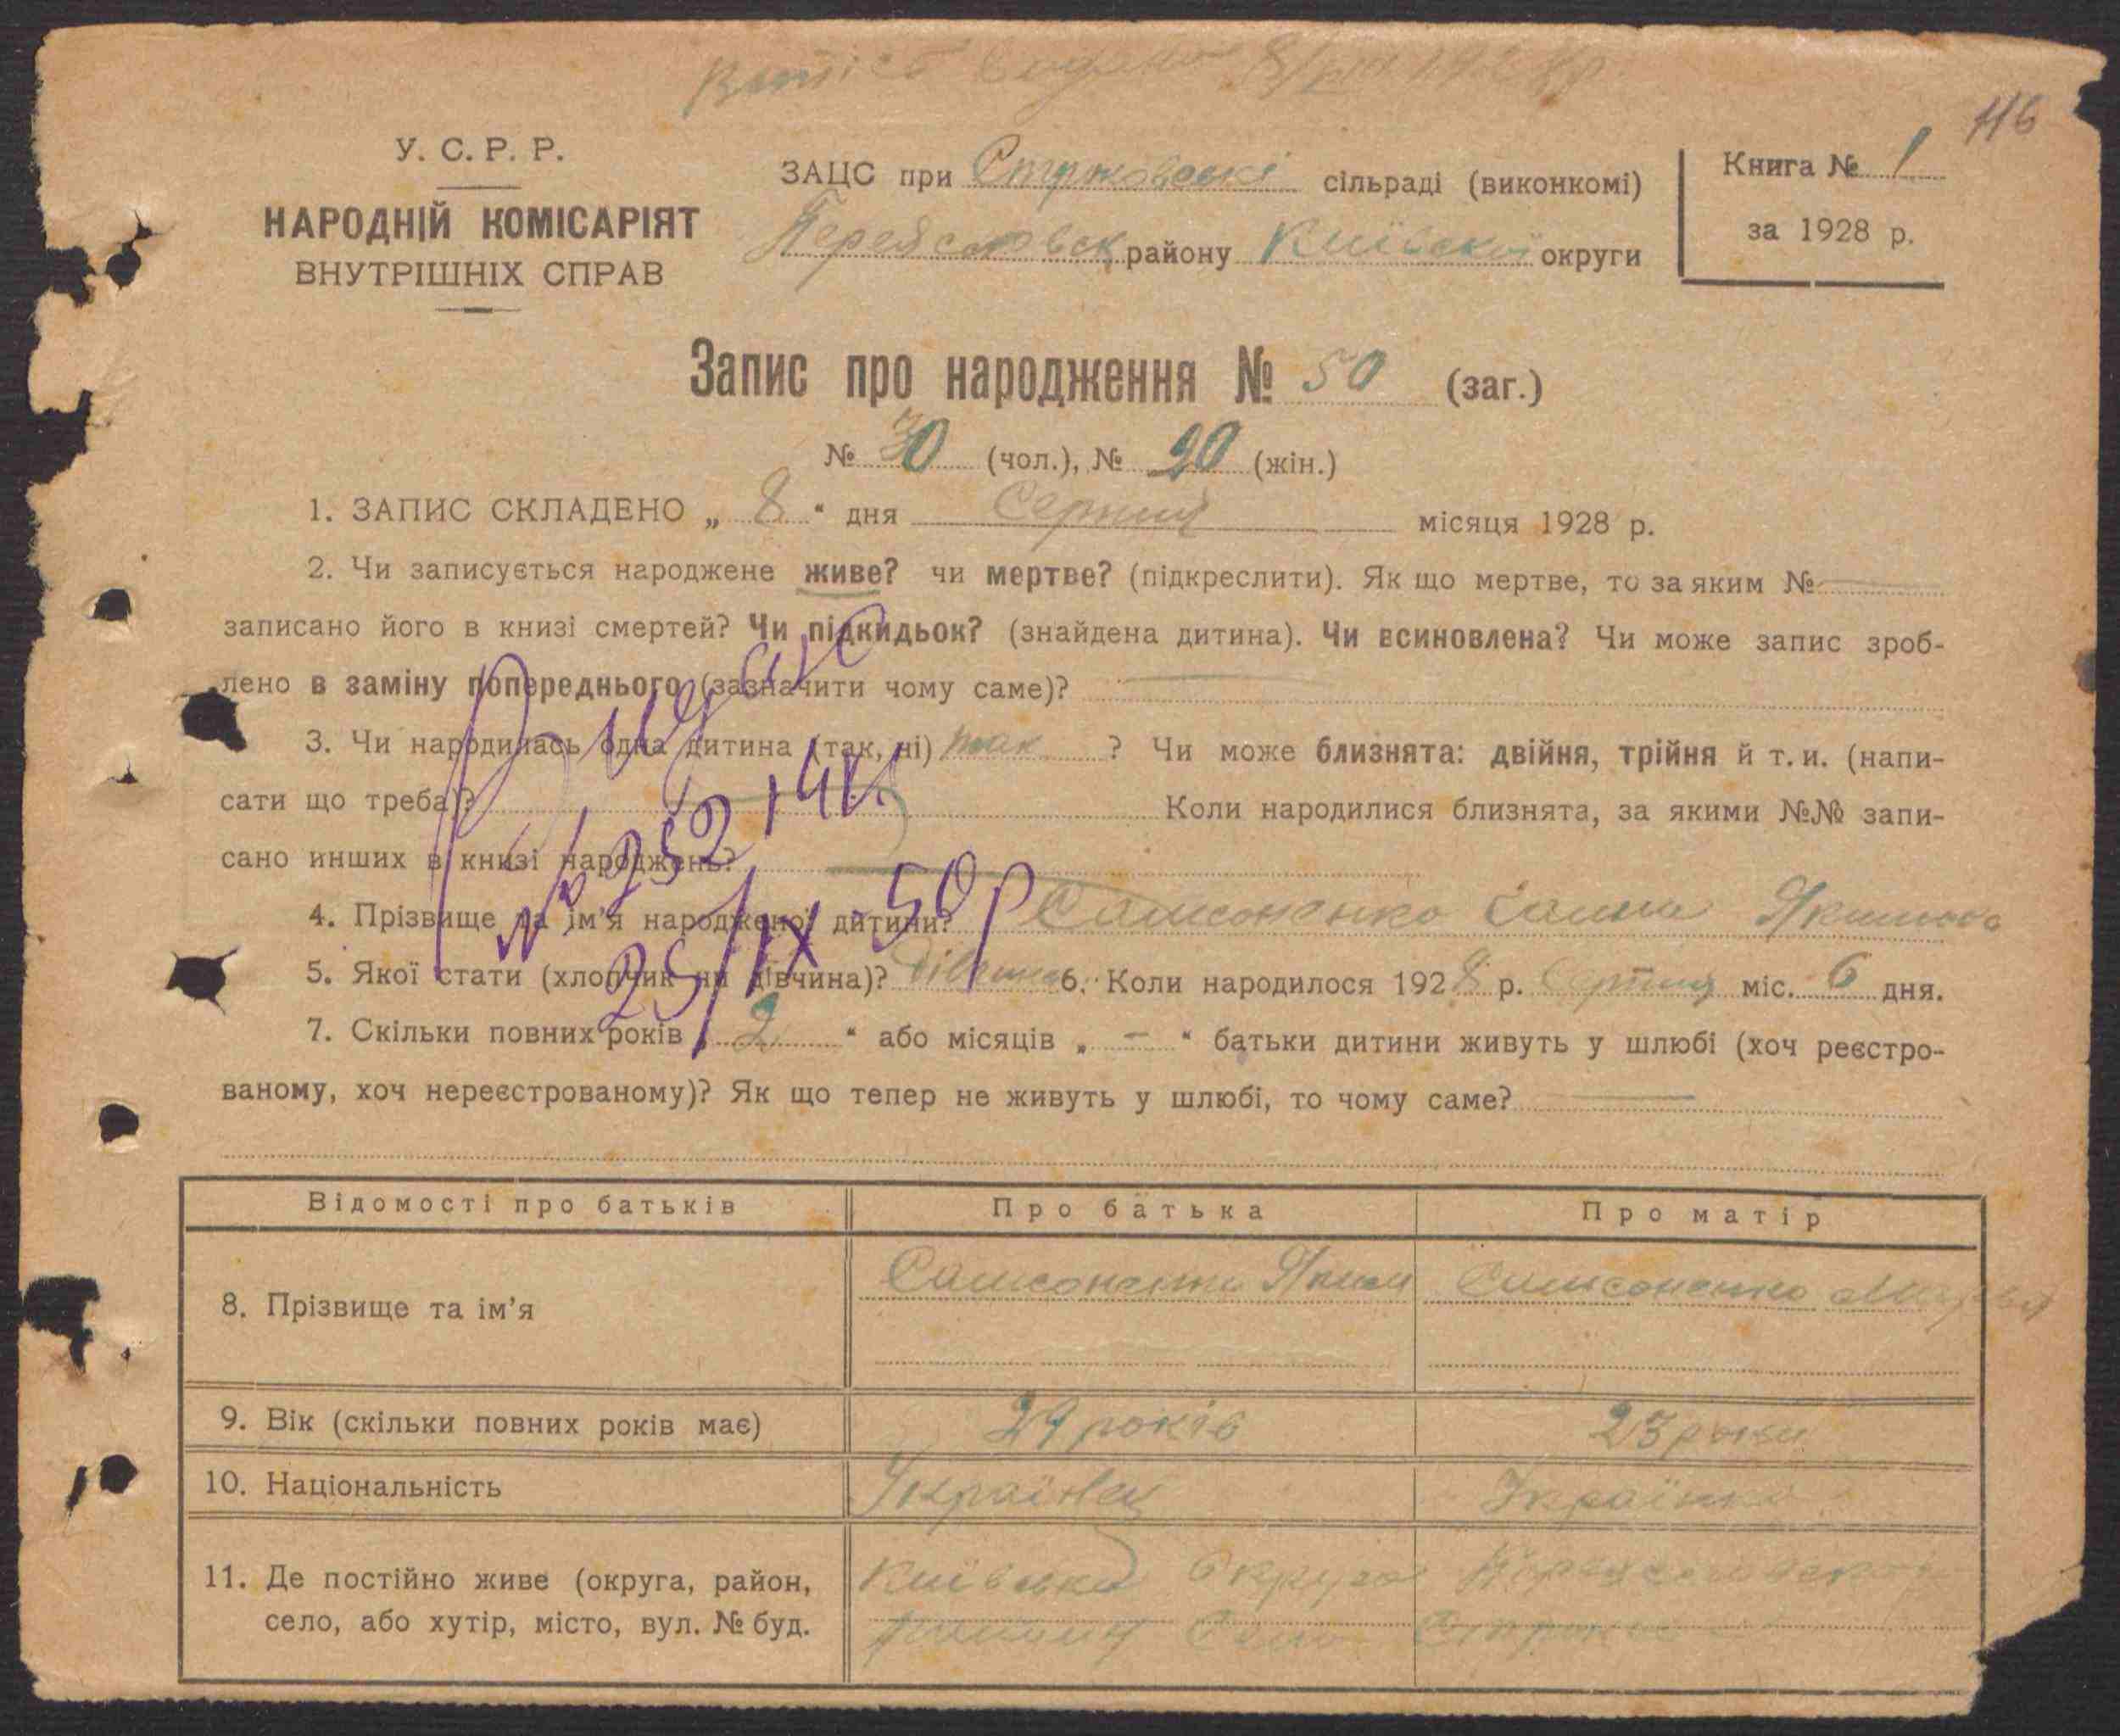 Випіс видано 8/VIII 1928 р.
116
У. С. Р. Р.
НАРОДНІЙ КОМІСАРІЯТ
ВНУТРІШНІХ СПРАВ
ЗАЦС при сільраді (виконкомі)
району Київської округи
Книга № 1
за 1928 р.
Запис про народження № 50 (заг.)
№ 30 (чол.), № 20 (жін.)
1. ЗАПИС СКЛАДЕНО „ 8 “ дня Серпня місяця 1928 р.
2. Чи записується народжене живе? чи мертве? (підкреслити). Як що мертве, то за яким №
записано його в книзі смертей? Чи підкидьок? (знайдена дитина). Чи всиновлена? Чи може запис зроб-
лено в заміну попереднього (зазначити чому саме)?
3. Чи народилась одна дитина (так, ні) так ? Чи може близнята: двійня, трійня й т. и. (напи-
сати що треба)? Коли народилися близнята, за якими №№ запи-
сано инших в книзі народжень?
4. Прізвище та ім’я народженої дитини? Самсоненко Галина Якимова
5. Якої стати (хлопчик чи дівчина)? Дівчина 6. Коли народилося 1928 р. Серпня міс. 6 дня.
7. Скільки повних років „ 2 “ або місяців „ – “ батьки дитини живуть у шлюбі (хоч реєстро-
ваному, хоч нереєстрованому)? Як що тепер не живуть у шлюбі, то чому саме?
25/IX-50р
Відомості про батьків
Про батька
Про матір
8. Прізвище та ім’я
Самсоненко Яким
Самсоненко
9. Вік (скільки повних років має)
29 років
23 роки
10. Національність
Українец
Українка
11. Де постійно живе (округа, район,
село, або хутір, місто, вул. № буд.
Київська Округа
Село